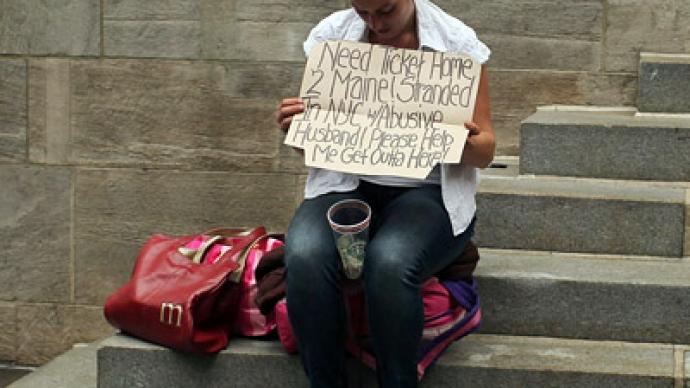 Need Ticket Home
2 Maine! Stranded
In NYC w/Abusive
Husband! Please Help
Me Get Outta Here!
m